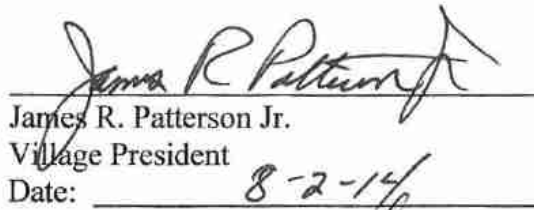 James R Patterson Jr
James R. Patterson Jr.
Village President
Date: 8-2-14